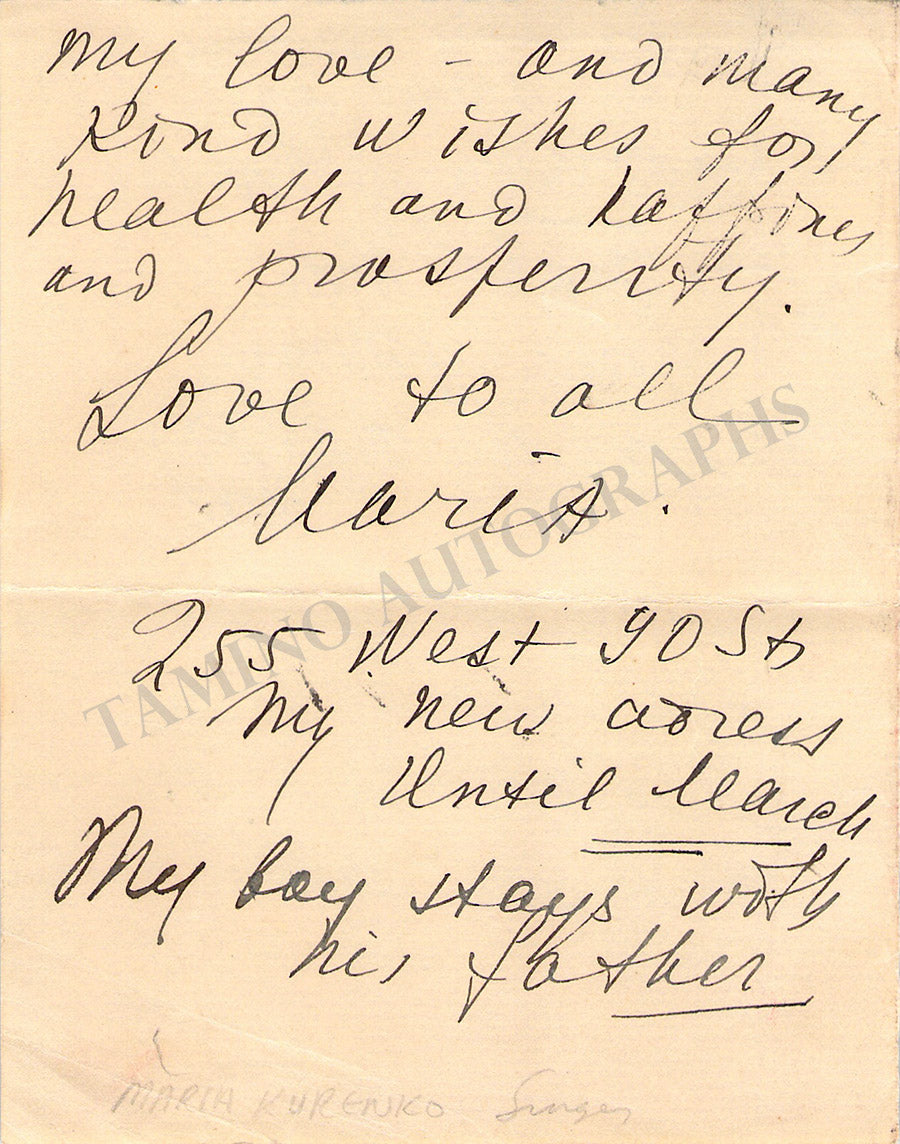 my love - and many
kind wishes for
health and happines
and prosperity.
Love to all
Maria.
255 West 90 St
My new adress
Until March
My boy stays with
his father
MARIA KURENKO Singer
TAMINO AUTOGRAPHS